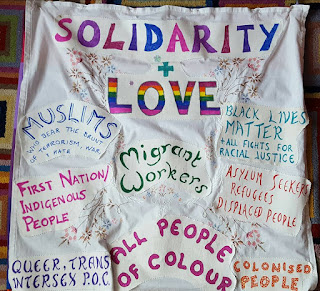 SOLIDARITY
+
LOVE
MUSLIMS
WHO BEAR THE BRUNT
OF TERRORISM, WAR
+ HATE
BLACK LIVES
MATTER
+ ALL FIGHTS FOR
RACIAL JUSTICE
Migrant
Workers
FIRST NATION/
INDIGENOUS
PEOPLE
ASYLUM SEEKERS
REFUGEES
DISPLACED PEOPLE
ALL PEOPLE
OF COLOUR
QUEER, TRANS
INTERSEX P.O.C.
COLONISED
PEOPLE